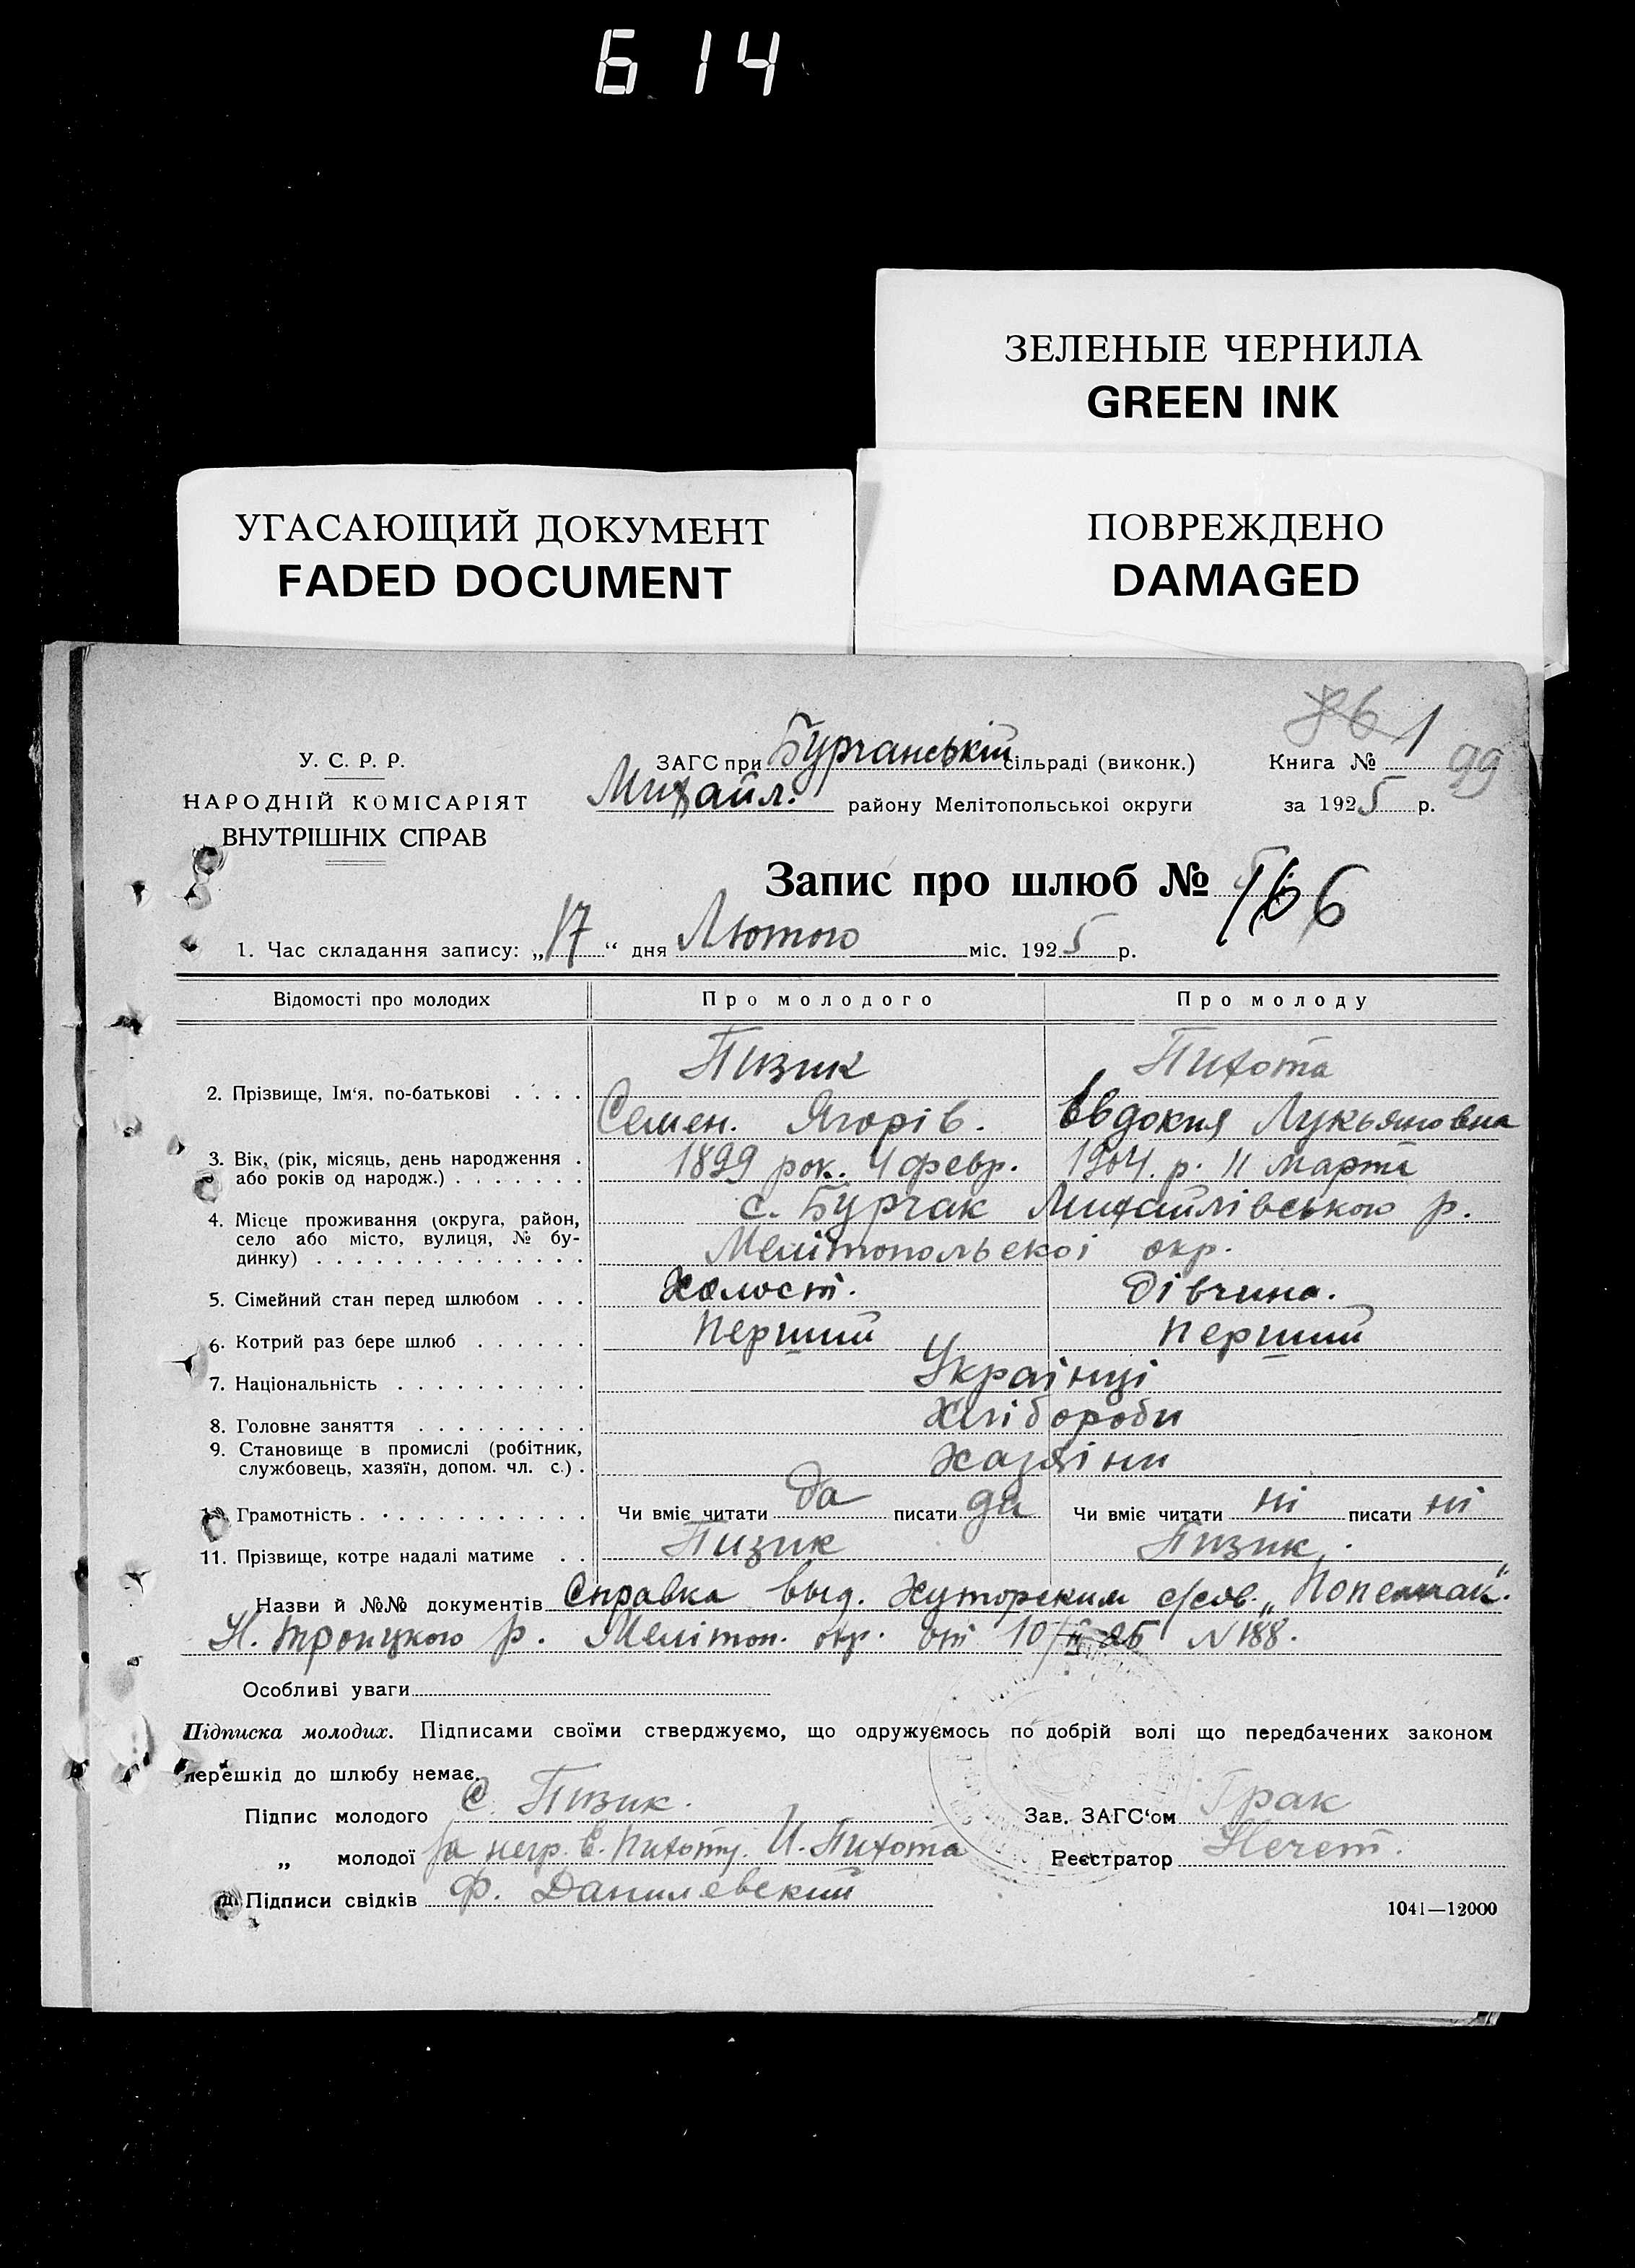 614
ЗЕЛЕНЫЕ ЧЕРНИЛА
GREEN INK
УГАСАЮЩИЙ ДОКУМЕНТ
FADED DOCUMENT
ПОВРЕЖДЕНО
DAMAGED
86 1
99
У. С. Р. Р.
НАРОДНІЙ КОМІСАРІЯТ
ВНУТРІШНІХ СПРАВ
ЗАГС при Бурчанській сільраді (виконк.)
Михайл. району Мелітопольської округи
Книга №
за 1925 р.
Запис про шлюб № 166
1. Час складання запису: „17“ дня Лютого міс. 1925 р.
Відомості про молодих Про молодого Про молоду
2. Прізвище, Ім‘я, по-батькові . . . . Пизик Пихота
Семен. Ягорів. Евдокия Лукьяновна
3. Вік, (рік, місяць, день народження . 1899 рок. 4 февр. 1904. р. 11 марта
або років од народж.) . . . . . . .
4. Місце проживання (округа, район, с. Бурчак Михайлівського р.
село або місто, вулиця, № бу-
динку) . . . . . . . . . . . . . . Мелітопольської окр.
5. Сімейний стан перед шлюбом . . . Холост. Дівчина.
6. Котрий раз бере шлюб . . . . . . Перший Перший
7. Національність . . . . . . . . . . Українці
8. Головне заняття . . . . . . . . . Хлібороби
9. Становище в промислі (робітник,
службовець, хазяїн, допом. чл. с.) . Хазяіни
10. Грамотність . . . . . . . . . . . . Чи вміє читати да писати да Чи вміє читати ні писати ні
11. Прізвище, котре надалі матиме . . Пизик Пизик.
Назви й №№ документів Справка выд. Хуторским с/сов.
Н. Троицкого р. Меліт. окр. от 10/II-25 N 188.
Особливі уваги
Підписка молодих. Підписами своїми стверджуємо, що одружуємось по добрій волі що передбачених законом
перешкід до шлюбу немає.
Підпис молодого С. Пизик.
Зав. ЗАГС‘ом Грак
„ молодої за негр. Е. Пихоту. И. Пихота
Реєстратор Нечет.
Підписи свідків Ф. Данилевский
1041—12000